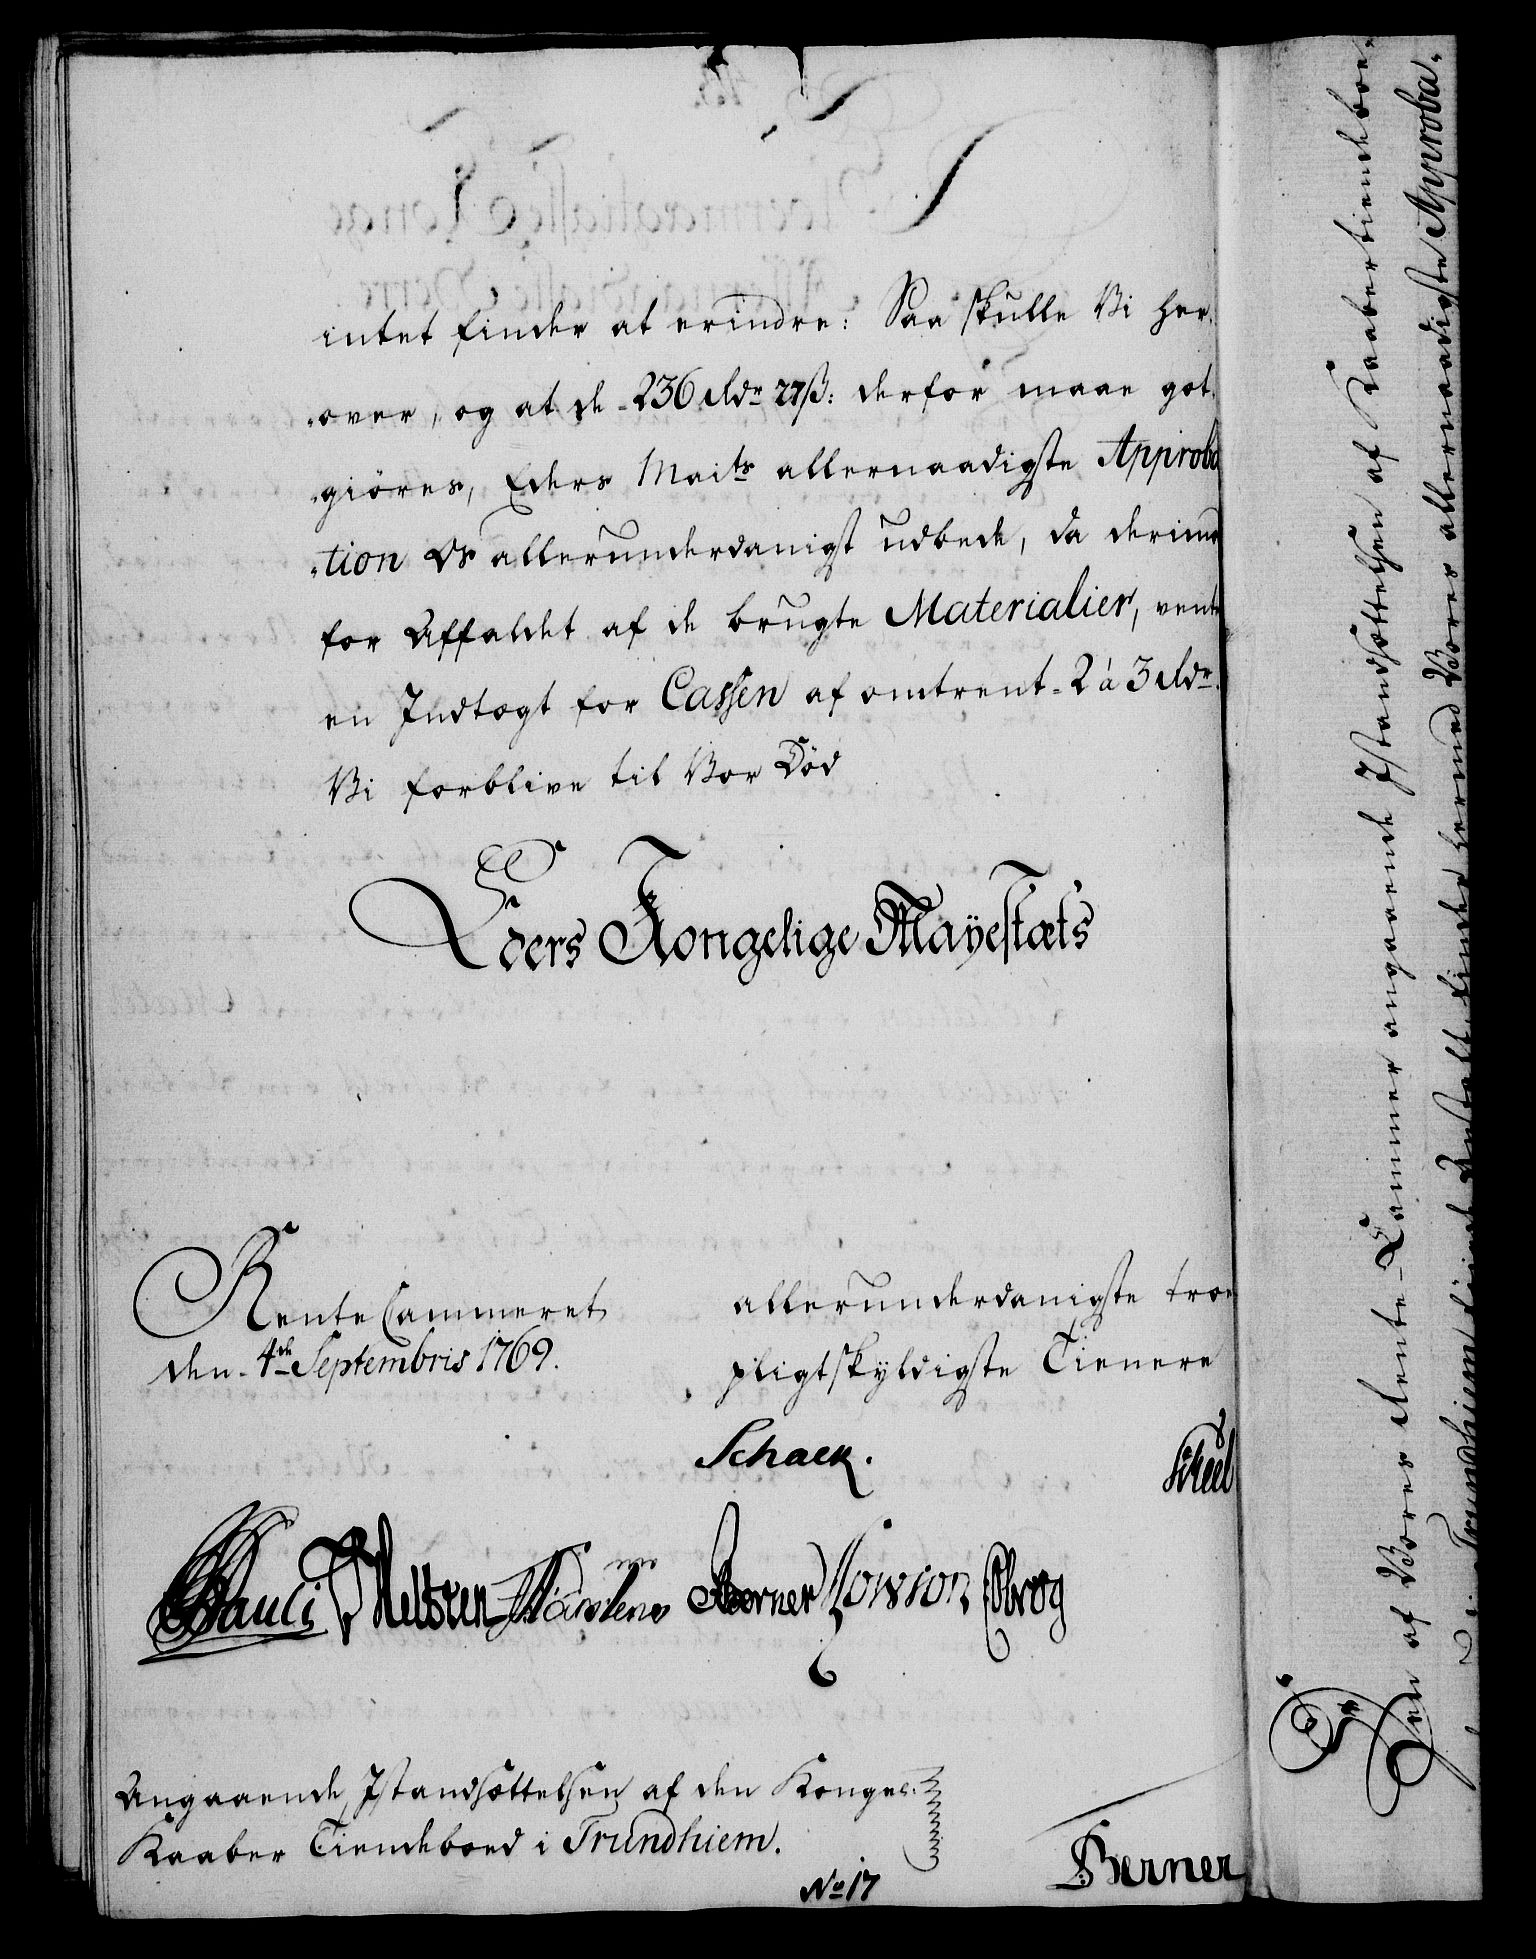 intet finder at erindre: Saa skulle Vi her,
„over, og at de 236 Rdr 27ß: derfor maae got,
„giöres, Eders Maits allernaadigste Approba
„tion Os allerunderdanigst udbede, da derimod
for Affaldet af de brugte Materialier, ventes
en Indtægt for Cassen af omtrent 2 à 3 Rdr.
Vi forblive til Vor Död
Eders Kongelige Mayestæts
Rente Cammeret
den 4de Septembris 1769.
allerunderdanigste troe
pligtskyldigste Tienere
Schack.
Scheel
Pauli Nelthen Carstens Berner Lowson Obrog
Angaaende Istandsættelsen af den Kongel.
Kaaber Tiendeboed i Trundhiem.
No 17
Berner
Den af Vores Rente-Cammer angaaende Istandsættelsen af Kaabertiendeboe,
i Trundhiem finder hermed Vores allernaadigste Approba,